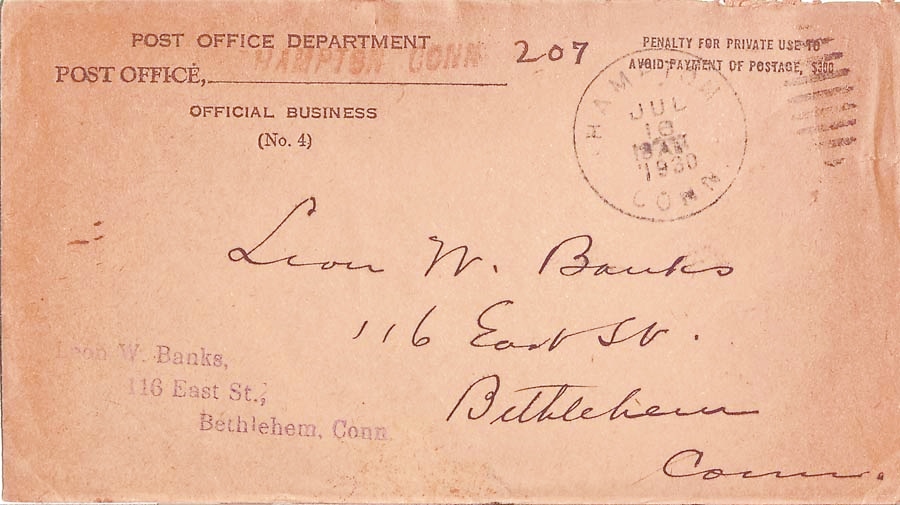 POST OFFICE DEPARTMENT
HAMPTON CONN
POST OFFICE,
OFFICIAL BUSINESS
(No. 4)
207
PENALTY FOR PRIVATE USE TO
AVOID PAYMENT OF POSTAGE, $300
HAMPTON
JUL
AM
1930
CONN.
Leon W. Banks
116 East St.
Bethlehem
Conn.
Leon W. Banks,
116 East St.,
Bethlehem, Conn.